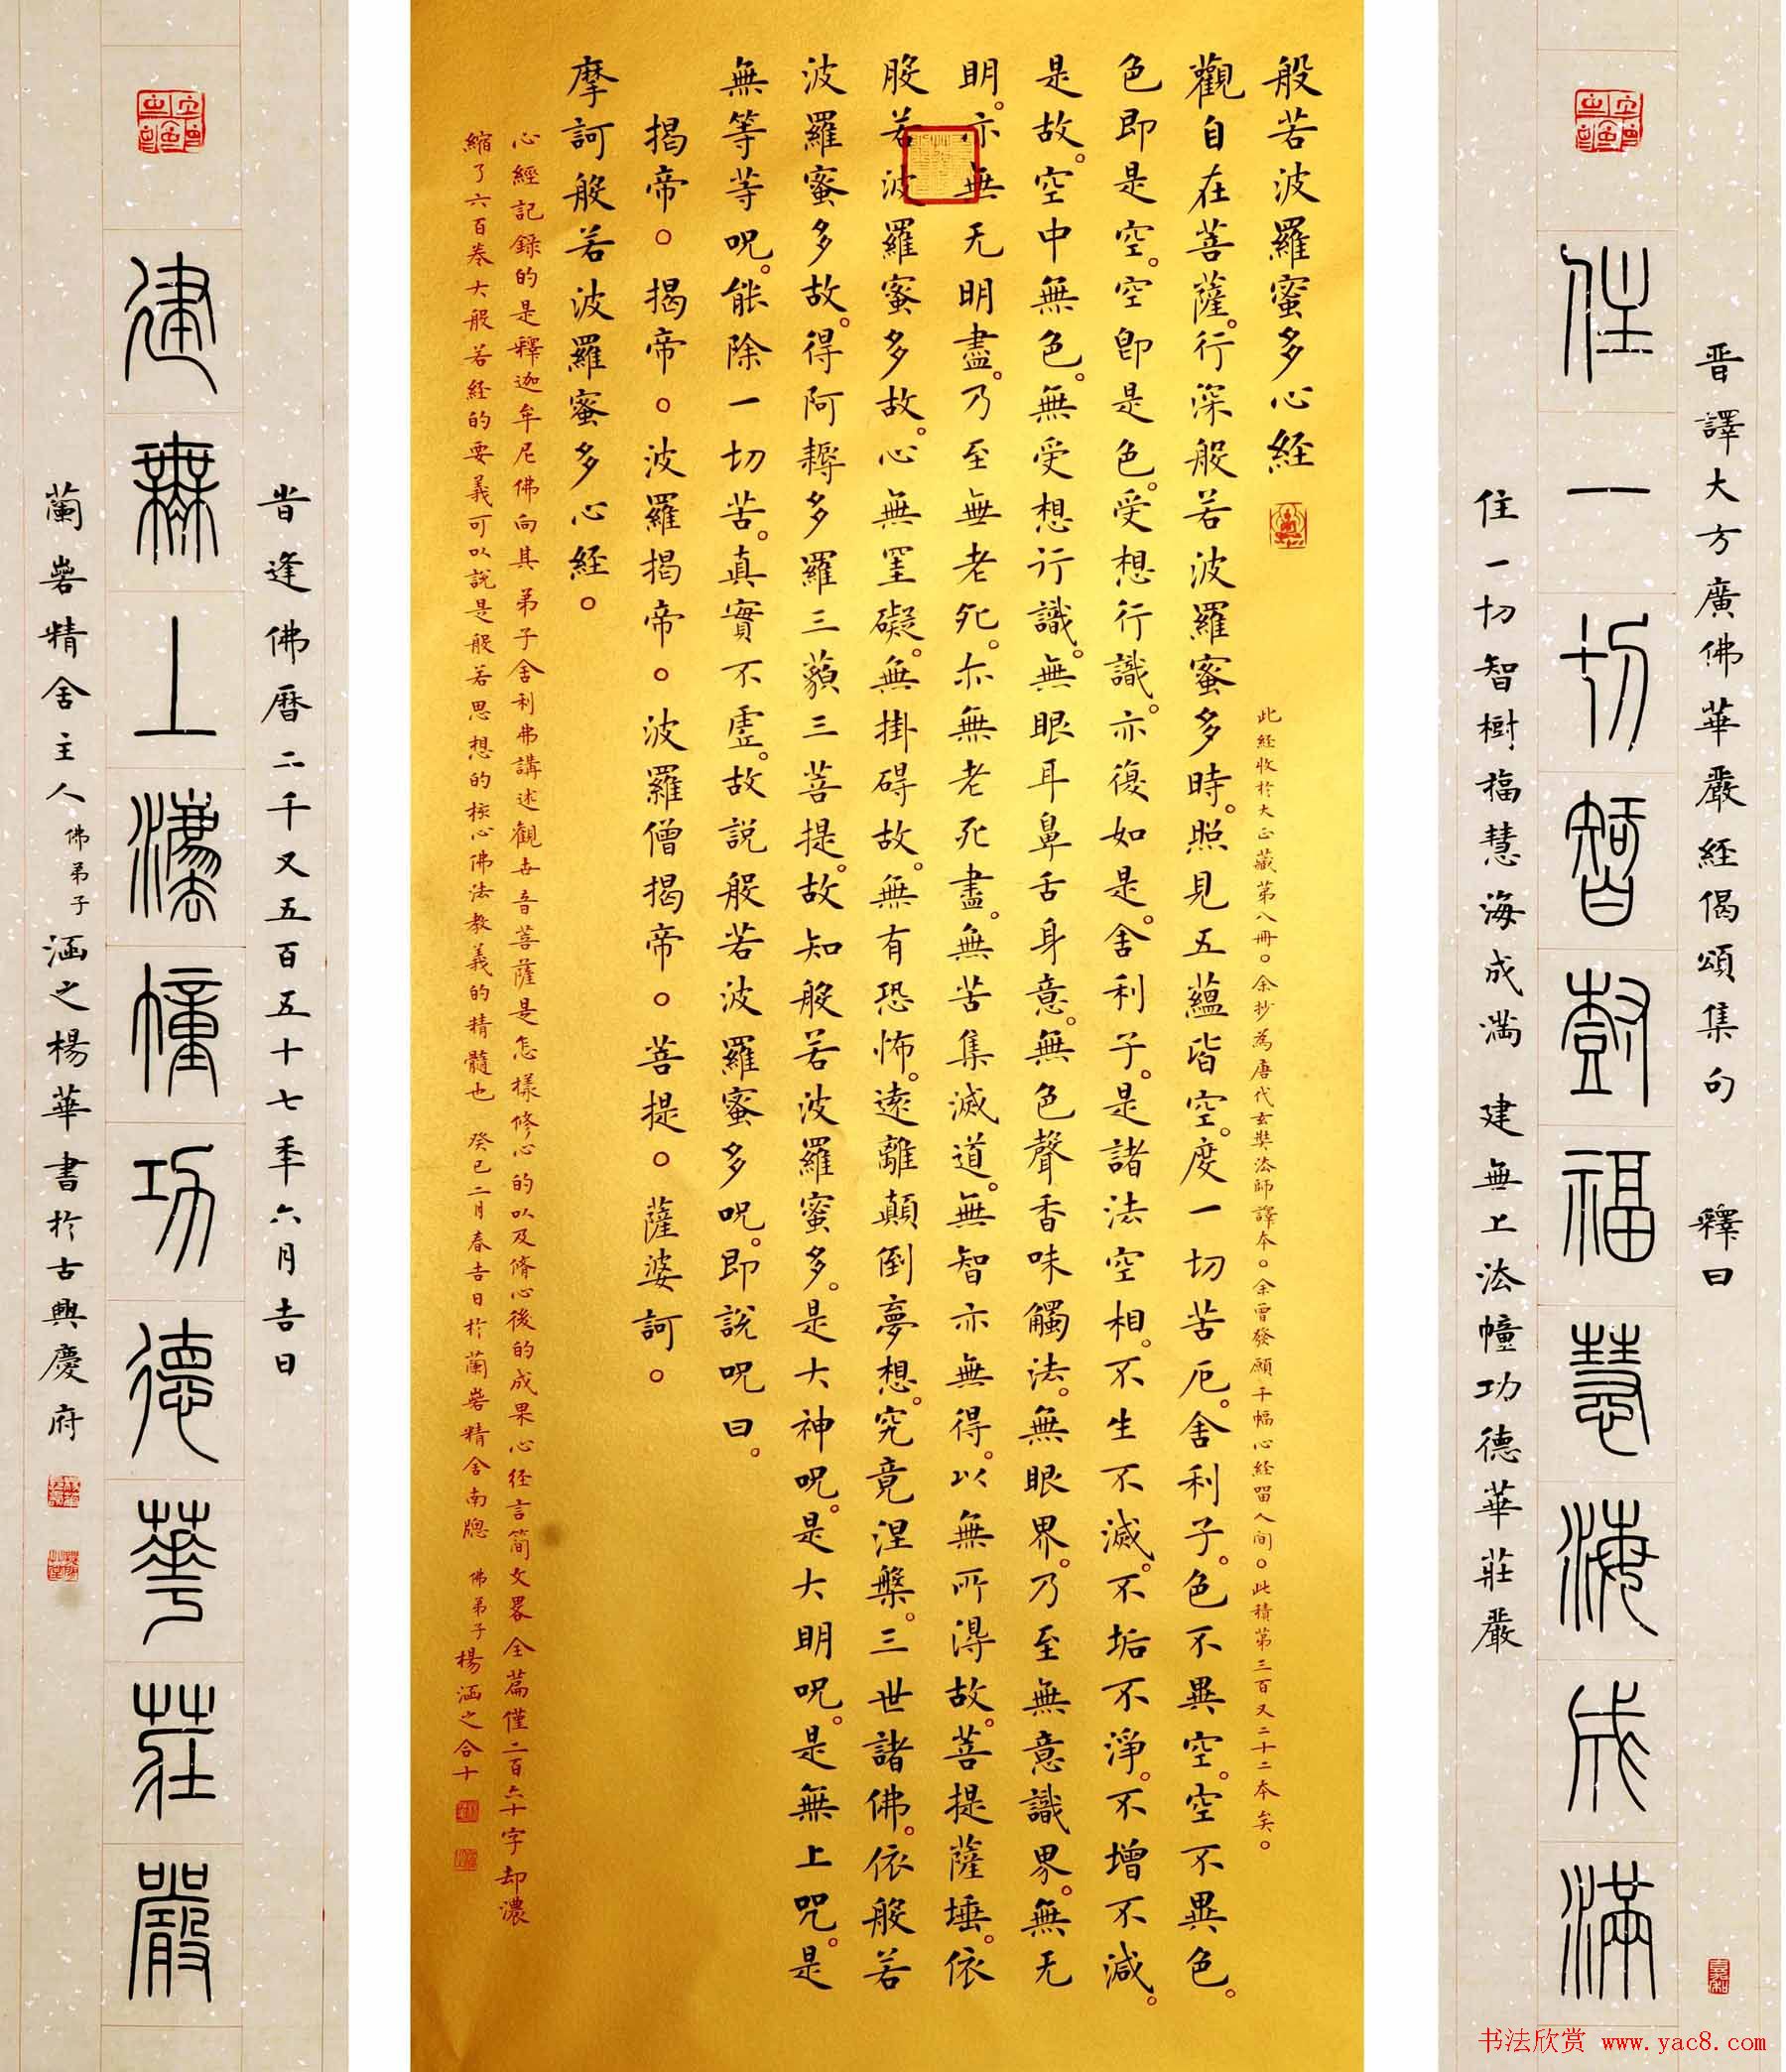 晋譯大方廣佛華嚴經偈頌集句 釋曰
住一切智樹福慧海成滿
住一切智樹福慧海成满 建無上法幢功德華莊嚴
般若波羅蜜多心経
此経收於大正藏第八冊。余抄為唐代玄奘法師譯本。余曾發願千幅心経留人间。此積第三百又二十二本矣。
觀自在菩薩。行深般若波羅蜜多時。照見五蘊皆空。度一切苦厄。舍利子。色不異空。空不異色。
色即是空。空即是色。受想行識。亦復如是。舍利子。是諸法空相。不生不滅。不垢不淨。不增不減。
是故。空中無色。無受想行識。無眼耳鼻舌身意。無色聲香味觸法。無眼界。乃至無意識界。無无
明。亦無无明盡。乃至無老死。亦無老死盡。無苦集滅道。無智亦無得。以無所得故。菩提薩埵。依
般若波羅蜜多故。心無罣礙。無掛碍故。無有恐怖。遠離顛倒夢想。究竟涅槃。三世諸佛。依般若
波羅蜜多故。得阿耨多羅三藐三菩提。故知般若波羅蜜多。是大神呪。是大明呪。是無上呪。是
無等等呪。能除一切苦。真實不虛。故説般若波羅蜜多呪。即説呪曰。
揭帝。揭帝。波羅揭帝。波羅僧揭帝。菩提。薩婆訶。
摩訶般若波羅蜜多心経。
心經記録的是釋迦牟尼佛向其弟子舍利弗講述觀世音菩薩是怎樣修心的以及脩心後的成果心经言简文畧全篇僅二百六十字却濃
縮了六百卷大般若经的要義可以説是般若思想的核心佛法教義的精髓也 癸巳二月春吉日於蘭岩精舍南牕 佛弟子楊涵之合十
昔逢佛曆二千又五百五十七年六月吉日
建無上灋幢功德華莊嚴
蘭岩精舍主人佛弟子涵之楊華書於古興慶府
书法欣赏 www.yac8.com